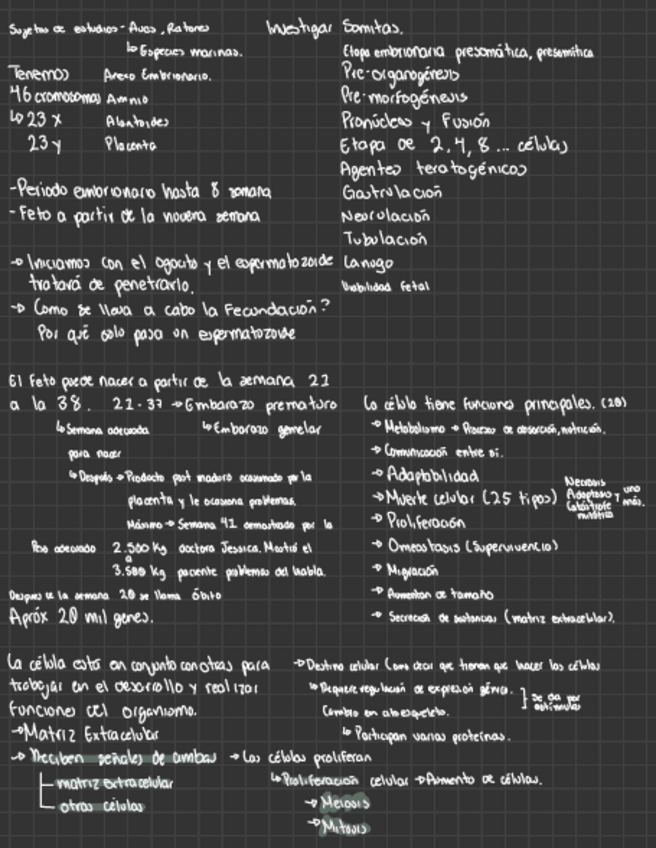 Sujetos de estudios - Aves, Ratones
↳ Especies marinas.
Tenemos Anexo Embrionario.
46 cromosomas Amnio
↳ 23 x Alantoides
23 y Placenta
- Periodo embrionario hasta 8 semana
- Feto a partir de la novena semana
→ Iniciamos con el ogocito y el espermatozoide
tratará de penetrarlo.
→ Como se lleva a cabo la Fecundación?
Por qué solo pasa un espermatozoide
Investigar Somitas.
Etapa embrionaria presomática, presomítica
Pre-organogénesis
Pre-morfogénesis
Pronúcleos y Fusión
Etapa de 2, 4, 8 ... células
Agentes teratogénicos
Gastrulación
Neorulación
Tubulación
Lanugo
Viabilidad fetal
El Feto puede nacer a partir de la semana 22
a la 38. 22-37 → Embarazo prematuro
↳ Semana adecuada ↳ Embarazo gemelar
para nacer
↳ Después → Producto post maduro ocasionado por la
placenta y le ocasiona problemas.
Máximo → Semana 42 demostrado por la
Peso adecuado 2.500 Kg doctora Jessica. Mostró el
a
3.500 Kg paciente problemas del habla.
Despues de la semana 20 se llama óbito
Apróx 20 mil genes.
La célula tiene funciones principales. (20)
→ Metabolismo → Proceso de absorción, nutrición.
→ Comunicación entre sí.
→ Adaptabilidad
→ Muerte celular (25 tipos) Necrosis
Adoptosis y uno
Catástrofe más.
mitótica
→ Proliferación
→ Omeostasis (Supervivencia)
→ Migración
→ Aumentan de tamaño
→ Secreción de sustancias (matriz extracelular).
La célula está en conjunto con otras para
trabajar en el desarrollo y realizar
funciones del organismo.
→ Matriz Extracelular
→ Reciben señales de ambas
matriz extracelular
otras células
→ Destino celular (Como decir que tienen que hacer las células
↳ Requiere regulación de expresión génica. ] Se da por
estímulos
Cambio en citoesqueleto.
↳ Participan varias proteínas.
→ Las células proliferan
↳ Proliferación celular → Aumento de células.
→ Meiosis
→ Mitosis